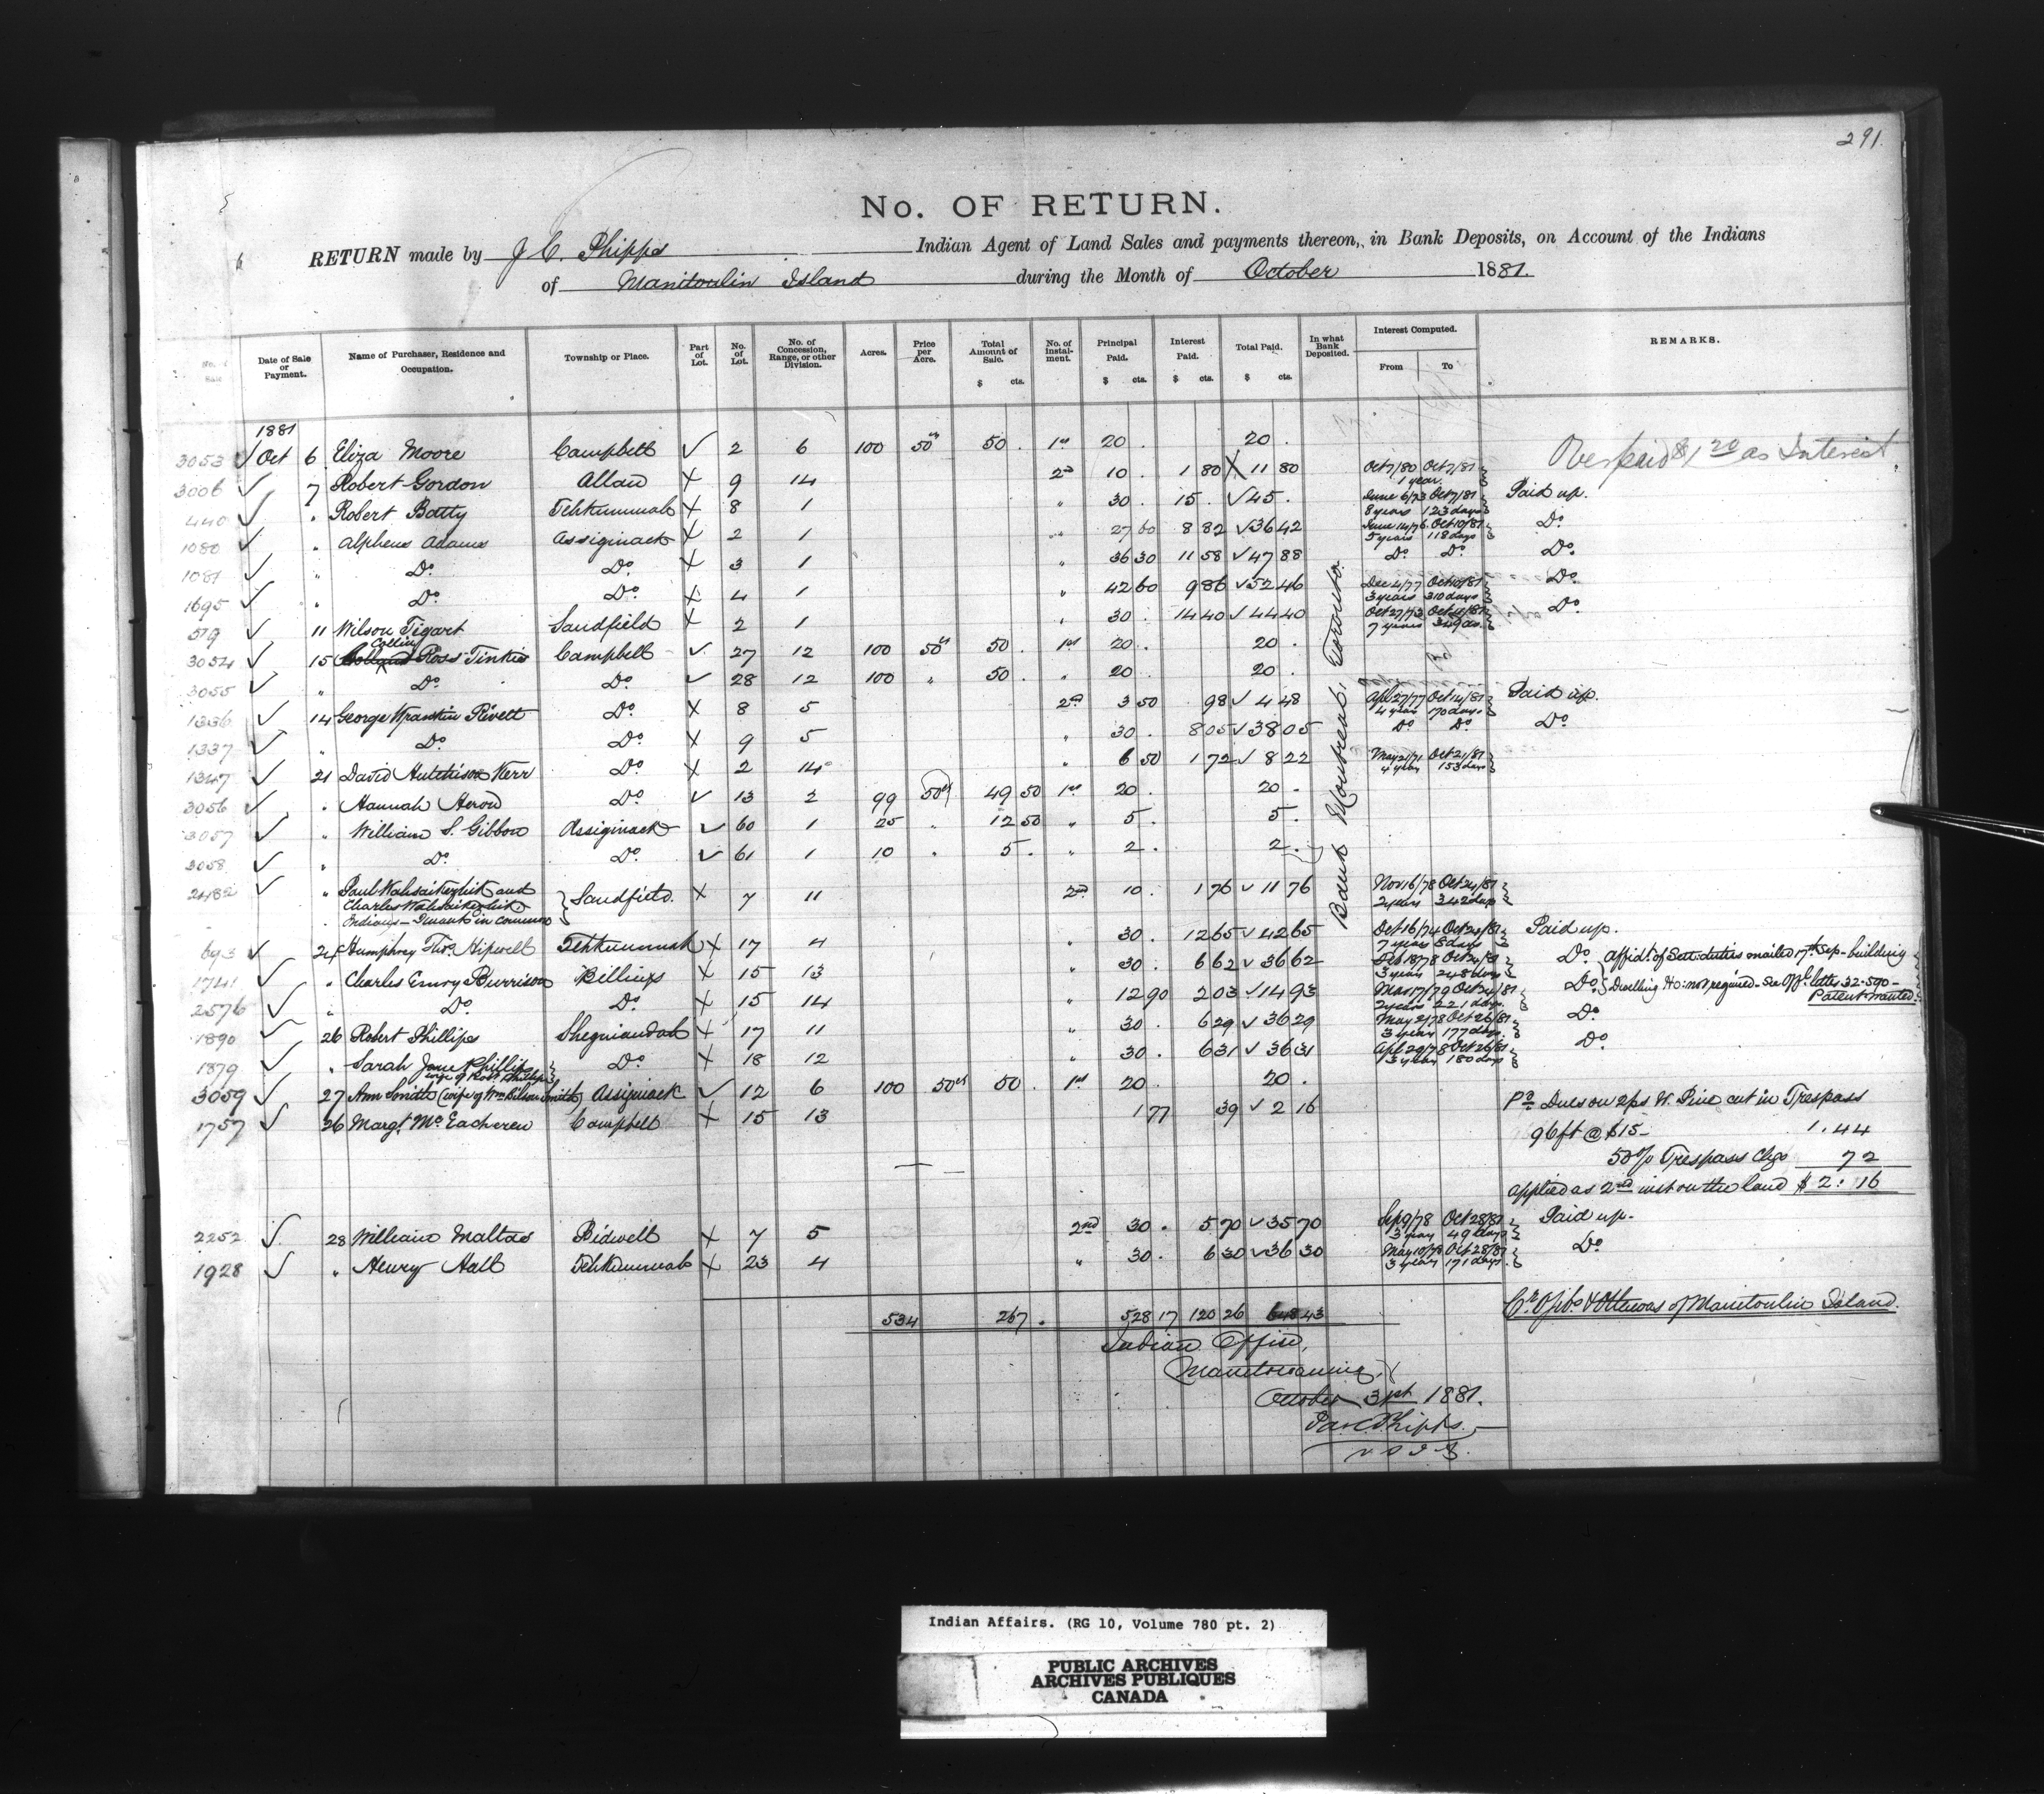 291.
No. OF RETURN.
RETURN made by J C. Phipps Indian Agent of Land Sales and payments thereon, in Bank Deposits, on Account of the Indians
of Manitoulin Island during the Month of October 1881.
No. of Sale | Date of Sale or Payment. | Name of Purchaser, Residence and Occupation. | Township or Place. | Part of Lot. | No. of Lot. | No. of Concession, Range, or other Division. | Acres. | Price per Acre. | Total Amount of Sale. $ cts. | No. of Instalment. | Principal Paid. $ cts. | Interest Paid. $ cts. | Total Paid. $ cts. | In what Bank Deposited. | Interest Computed. From To | REMARKS.
1881
3053 ✓ Oct 6 Eliza Moore Campbell ✓ 2 6 100 50cts 50 . 1st 20 . 20 .
3006 ✓ 7 Robert Gordon Allan X 9 14 2nd 10 . 1 80 X 11 80 Oct 7/80 Oct 7/81 1 year. Overpaid $1 20 as Interest
440 ✓ " Robert Batty Tehkummah X 8 1 " 30 . 15 . ✓ 45 . June 6/73 Oct 7/81 8 years 123 days Paid up.
1080 ✓ " Alpheus Adams Assiginack X 2 1 " 27 60 8 82 ✓ 36 42 June 14/76 Oct 10/81 5 years 118 days Do.
1081 ✓ " Do. Do. X 3 1 36 30 11 58 ✓ 47 88 Do. Do. Do.
1695 ✓ " Do. Do. X 4 1 " 42 60 9 86 ✓ 52 46 Dec 4/77 Oct 10/81 3 years 310 days Do.
519 ✓ 11 Wilson Tigart Sandfield X 2 1 " 30 . 14 40 ✓ 44 40 Oct 27/73 Oct 11/81 7 years 349 ds. Do.
3054 ✓ 15 Collin Ross Tinkis Campbell ✓ 27 12 100 50cts 50 . 1st 20 . 20 .
3055 ✓ " Do. Do. ✓ 28 12 100 " 50 . " 20 20 .
1336 ✓ 14 George Franklin Rivett Do. X 8 5 2nd 3 50 98 ✓ 4 48 Apl 27/77 Oct 14/81 4 years 170 days Paid up.
1337 ✓ " Do. Do. X 9 5 " 30 . 8 05 ✓ 38 05 Do. Do. Do.
1347 ✓ 21 David Hutchison Kerr Do. X 2 14 " 6 50 1 72 ✓ 8 22 May 21/77 Oct 21/81 4 years 153 days
3056 ✓ " Hannah Herod Do. ✓ 13 2 99 50cts 49 50 1st 20 . 20 .
3057 ✓ " William S. Gibbon Assiginack ✓ 60 1 25 " 12 50 " 5 . 5 .
3058 ✓ " Do. Do. ✓ 61 1 10 " 5 . " 2 . 2 .
2482 ✓ " Paul Wahsaikezhik and
Charles Wahsaikezhik Sandfield. X 7 11 2nd 10 . 1 76 ✓ 11 76 Nov 16/78 Oct 24/81 2 years 342 days
Indians – Tenants in common
693 ✓ 24 Humphrey Thos. Hipwell Tehkummah X 17 4 " 30 . 12 65 ✓ 42 65 Oct 16/74 Oct 24/81 7 years 8 days Paid up.
1741 ✓ " Charles Emry Burrison Billings X 15 13 " 30 . 6 62 ✓ 36 62 Feb 18/78 Oct 24/81 3 years 248 days Do. affidt. of Sett: duties mailed 17th Sep – building
2576 ✓ " Do. Do. X 15 14 " 12 90 2 03 ✓ 14 93 Mar 17/79 Oct 24/81 2 years 221 days. Do. Dwelling Ho: not required – See Offl. letter 32.590 – Patent wanted.
1890 26 Robert Phillips Sheguiandah X 17 11 " 30 . 6 29 ✓ 36 29 May 2/78 Oct 26/81 3 years 177 days. Do.
1879 ✓ " Sarah Jane Phillips wife of Robt Phillips Do. X 18 12 " 30 . 6 31 ✓ 36 31 Apl 29/78 Oct 26/81 3 years 180 days Do.
3059 ✓ 27 Ann Smith (wife of Wm Wilson Smith) Assiginack ✓ 12 6 100 50cts 50 . 1st 20 . 20 .
1757 ✓ 26 Margt. McEacheren Campbell X 15 13 1 77 39 ✓ 2 16 Pd. Dues on 2 ps W. Pine cut in Trespass
96 ft @ $15 – 1.44
50% Trespass Chgs 72
applied as 2nd inst on the land $2.16
2252 ✓ 28 William Maltas Bidwell X 7 5 2nd 30 . 5 70 ✓ 35 70 Sep 9/78 Oct 28/81 3 years 49 days Paid up.
1928 ✓ " Henry Hall Tehkummah X 23 4 " 30 . 6 30 ✓ 36 30 May 10/78 Oct 28/81 3 years 171 days. Do.
Bank Montreal, Toronto.
534 267 . 528 17 120 26 648 43
Cr. Ojibs & Ottawas of Manitoulin Island.
Indian Office,
Manitowaning,
October 31st 1881.
Jas. C. Phipps.
V. S. I. A.
Indian Affairs. (RG 10, Volume 780 pt. 2)
PUBLIC ARCHIVES
ARCHIVES PUBLIQUES
CANADA